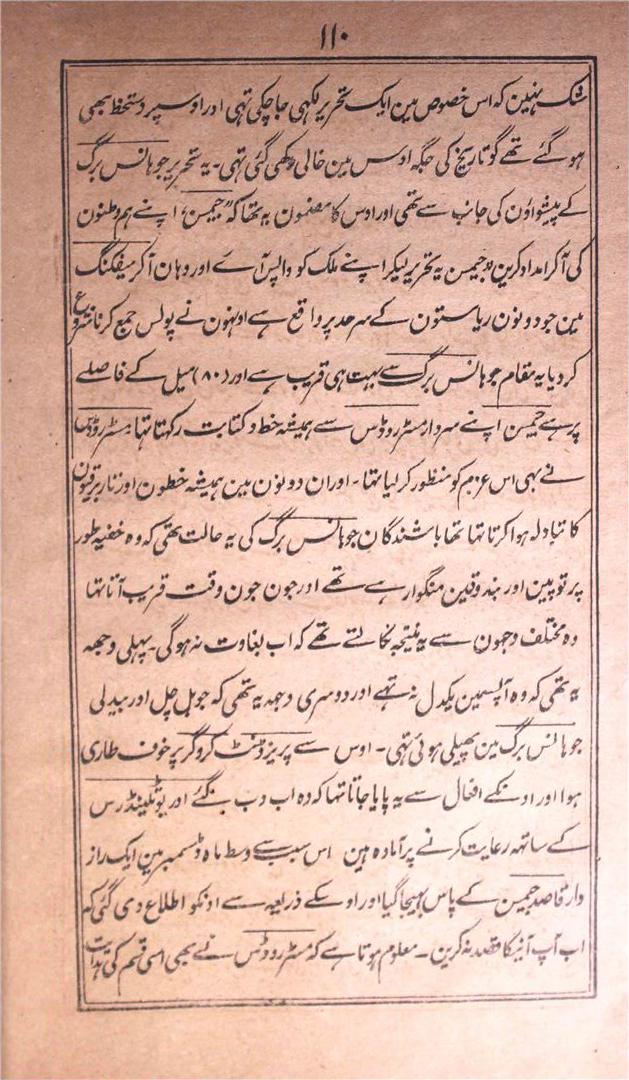 ۱۱۰
شک ہنین کہ اس خصوص مین ایک تحریر لکہی جا چکی تہی اور اوسپر دستخط بھی
ہو گئے تھے گو تاریخ کی جگہ اوس مین خالی رکھی گئی تہی ۔ یہ تحریر جوہانس برگ
کے پیشواؤن کی جانب سے تھی اور اوس کا مضمون یہ تھا کہ "جیمسن، اپنے ہم وطنون
کی آکر امداد کرین" جیمسن یہ تحریر لیکر اپنے ملک کو واپس آے اور وہان آکر میفکنگ
مین جو دونون ریاستون کے سرحد پر واقع ہے اونہون نے پولس جمع کرنا شروع
کر دیا یہ مقام جوہانس برگ سے بہت ہی قریب ہے اور (۸۰) میل کے فاصلے
پر ہے جیمسن اپنے سردار مسٹر روڈس سے ہمیشہ خط و کتابت رکہتا تہا مسٹر روڈس
نے بہی اس عزم کو منظور کر لیا تہا ۔ اور ان دونون مین ہمیشہ خطون اور تار برقیون
کا تبادلہ ہوا کرتا تہا تھا باشندگان جوہانس برگ کی یہ حالت تھی کہ وہ خفیہ طور
پر توپین اور بندوقین منگوا رہے تھے اور جون جون وقت قریب آتا تہا
وہ مختلف وجہون سے یہ نتیجہ نکالتے تھے کہ اب بغاوت نہ ہوگی ۔ پہلی وجہہ
یہ تھی کہ وہ آپسمین یکدل نہ تہے اور دوسری وجہہ یہ تھی کہ جو ہل چل اور بیدلی
جوہانس برگ مین پھیلی ہوئی تہی ۔ اوس سے پریزڈنٹ کروگر پر خوف طاری
ہوا اور اونکے افعال سے یہ پایا جاتا تہا کہ وہ اب دب گئے اور یوٹلینڈرس
کے ساتھہ رعایت کرنے پر آمادہ ہین اس سبب سے وسط ماہ ڈسمبر مین ایک راز
دار قاصد جیمسن کے پاس بھیجا گیا اور اوسکے ذریعہ سے اونکو اطلاع دی گئی کہ
اب آپ آنیکا قصد نہ کرین ۔ معلوم ہوتا ہے کہ مسٹر روڈس نے بھی اسی قسم کی ہدایت